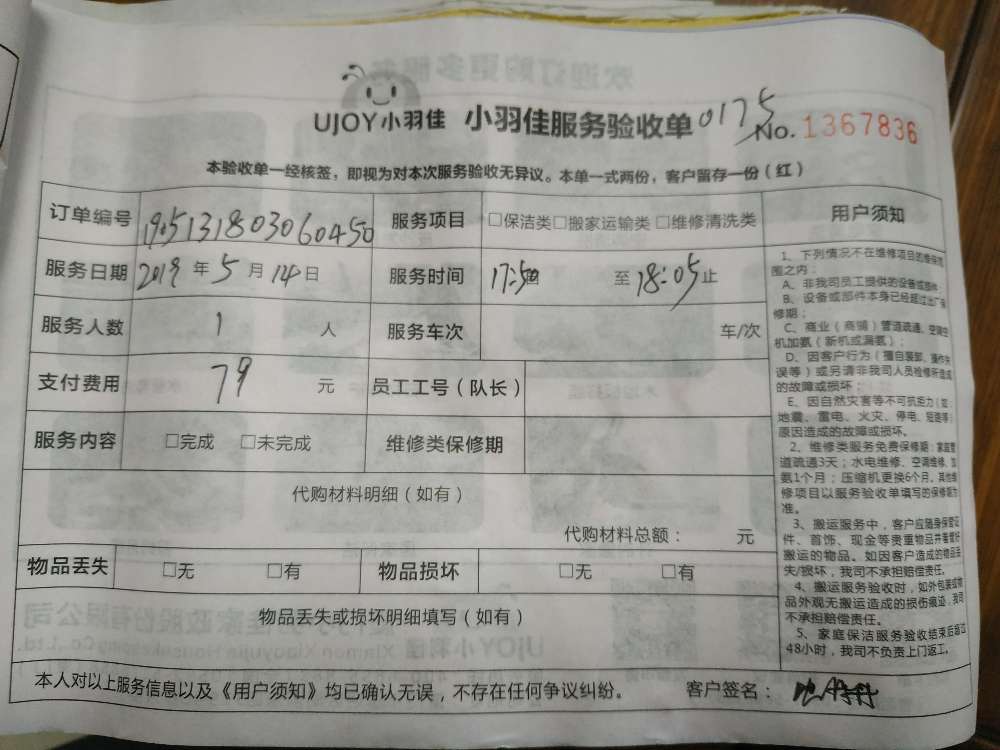 UJOY小羽佳 小羽佳服务验收单 0175 No. 1367836
本验收单一经核签，即视为对本次服务验收无异议。本单一式两份，客户留存一份（红）
订单编号 服务项目 □保洁类□搬家运输类 □维修清洗类
服务日期 2019 年 5 月 14 日 服务时间 17:50 至 18:05 止
服务人数 1 人 服务车次 车/次
支付费用 79 元 员工工号（队长）
服务内容 □完成 □未完成 维修类保修期
代购材料明细（如有）
代购材料总额： 元
物品丢失 □无 □有 物品损坏 □无 □有
物品丢失或损坏明细填写（如有）
本人对以上服务信息以及《用户须知》均已确认无误，不存在任何争议纠纷。 客户签名：
用户须知
1、下列情况不在维修项目的维保范
围之内：
A、非我司员工提供的设备或部件
B、设备或部件本身已经超过出厂保
修期；
C、商业（商铺）管道疏通，空调空
机加氨（新机或漏氨）；
D、因客户行为（擅自装卸、操作失
误等）或另请非我司人员检修所造成
的故障或损坏
E、因自然灾害等不可抗拒力（如
地震、雷电、火灾、停电、短路等）
原因造成的故障或损坏。
2、维修类服务免费保修期：家庭管
道疏通3天；水电维修、空调维修、加
氨1个月；压缩机更换6个月。其他维
修项目以服务验收单填写的保修期为
准。
3、搬运服务中，客户应随身保管证
件、首饰、现金等贵重物品并看管好
搬运的物品。如因客户造成的物品丢
失/损坏，我司不承担赔偿责任。
4、搬运服务验收时，如外包装或物
品外观无搬运造成的损伤痕迹，我司
不承担赔偿责任。
5、家庭保洁服务验收结束后超过
48小时，我司不负责上门返工。